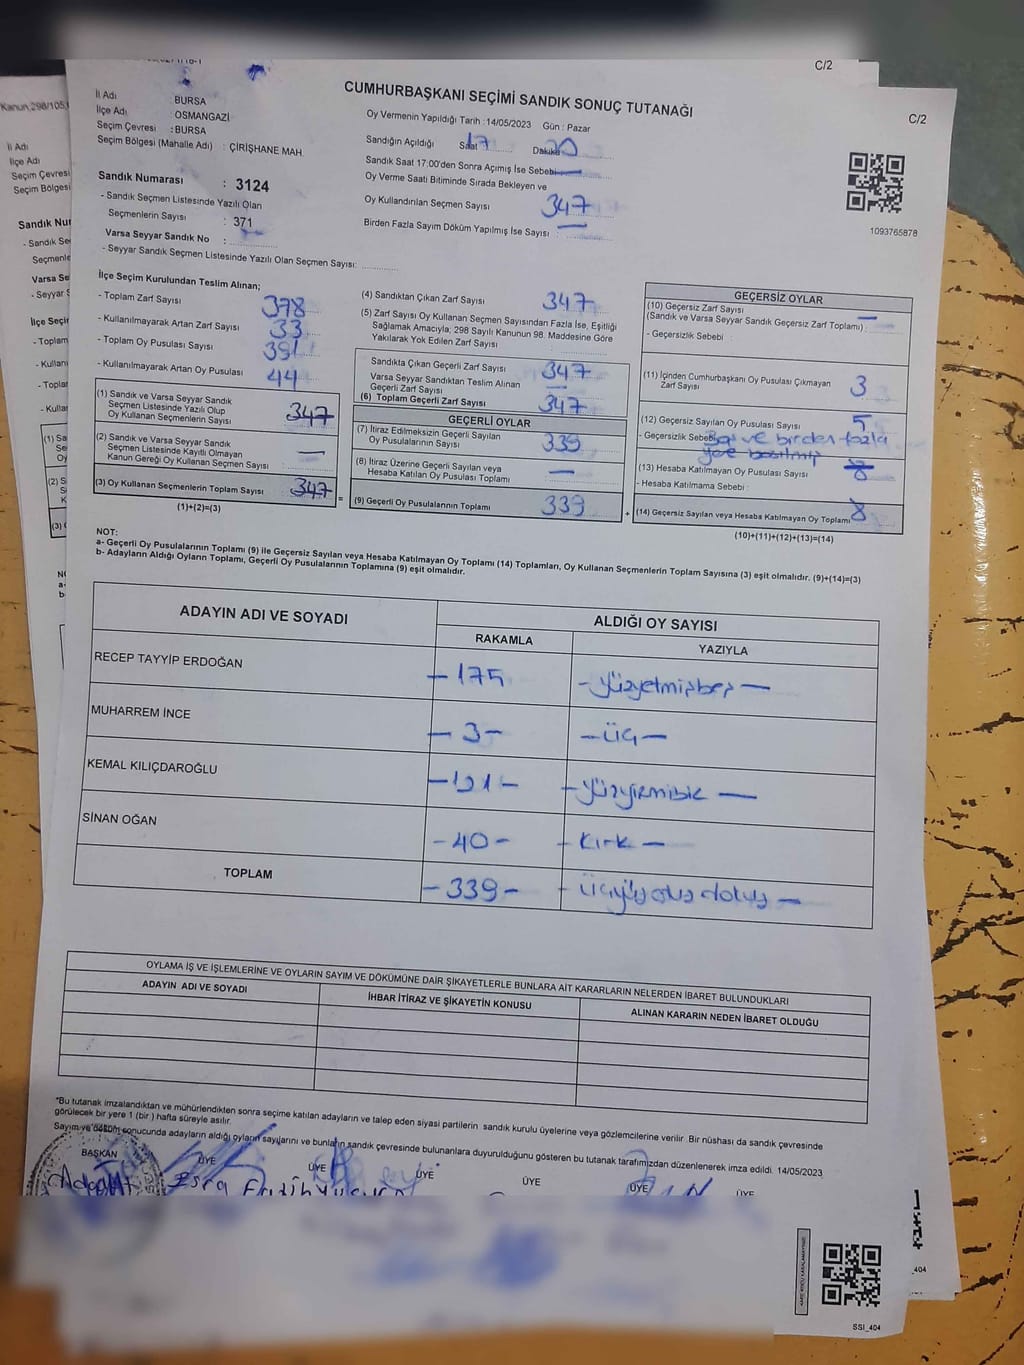 C/2
C/2
CUMHURBAŞKANI SEÇİMİ SANDIK SONUÇ TUTANAĞI
İl Adı : BURSA
İlçe Adı : OSMANGAZİ
Seçim Çevresi : BURSA
Seçim Bölgesi (Mahalle Adı) : ÇİRİŞHANE MAH.
Sandık Numarası : 3124
- Sandık Seçmen Listesinde Yazılı Olan
Seçmenlerin Sayısı : 371
Varsa Seyyar Sandık No :
- Seyyar Sandık Seçmen Listesinde Yazılı Olan Seçmen Sayısı:
Oy Vermenin Yapıldığı Tarih : 14/05/2023 Gün : Pazar
Sandığın Açıldığı Saat 17 Dakika 20
Sandık Saat 17:00'den Sonra Açımış İse Sebebi —
Oy Verme Saati Bitiminde Sırada Bekleyen ve
Oy Kullandırılan Seçmen Sayısı 347
Birden Fazla Sayım Döküm Yapılmış İse Sayısı : —
1093765878
İlçe Seçim Kurulundan Teslim Alınan;
- Toplam Zarf Sayısı 378
- Kullanılmayarak Artan Zarf Sayısı 33
- Toplam Oy Pusulası Sayısı 391
- Kullanılmayarak Artan Oy Pusulası 44
(1) Sandık ve Varsa Seyyar Sandık
Seçmen Listesinde Yazılı Olup
Oy Kullanan Seçmenlerin Sayısı 347
(2) Sandık ve Varsa Seyyar Sandık
Seçmen Listesinde Kayıtlı Olmayan
Kanun Gereği Oy Kullanan Seçmen Sayısı —
(3) Oy Kullanan Seçmenlerin Toplam Sayısı 347
(1)+(2)=(3)
(4) Sandıktan Çıkan Zarf Sayısı 347
(5) Zarf Sayısı Oy Kullanan Seçmen Sayısından Fazla İse, Eşitliği
Sağlamak Amacıyla; 298 Sayılı Kanunun 98. Maddesine Göre
Yakılarak Yok Edilen Zarf Sayısı
Sandıkta Çıkan Geçerli Zarf Sayısı 347
Varsa Seyyar Sandıktan Teslim Alınan
Geçerli Zarf Sayısı —
(6) Toplam Geçerli Zarf Sayısı 347
GEÇERLİ OYLAR
(7) İtiraz Edilmeksizin Geçerli Sayılan
Oy Pusulalarının Sayısı 339
(8) İtiraz Üzerine Geçerli Sayılan veya
Hesaba Katılan Oy Pusulası Toplamı —
(9) Geçerli Oy Pusulalarının Toplamı 339
GEÇERSİZ OYLAR
(10) Geçersiz Zarf Sayısı —
(Sandık ve Varsa Seyyar Sandık Geçersiz Zarf Toplamı) :
- Geçersizlik Sebebi :
(11) İçinden Cumhurbaşkanı Oy Pusulası Çıkmayan
Zarf Sayısı 3
(12) Geçersiz Sayılan Oy Pusulası Sayısı 5
- Geçersizlik Sebebi Boş ve birden fazla
yere basılmış
(13) Hesaba Katılmayan Oy Pusulası Sayısı
- Hesaba Katılmama Sebebi :
(14) Geçersiz Sayılan veya Hesaba Katılmayan Oy Toplamı 8
(10)+(11)+(12)+(13)=(14)
NOT:
a- Geçerli Oy Pusulalarının Toplamı (9) ile Geçersiz Sayılan veya Hesaba Katılmayan Oy Toplamı (14) Toplamları, Oy Kullanan Seçmenlerin Toplam Sayısına (3) eşit olmalıdır. (9)+(14)=(3)
b- Adayların Aldığı Oyların Toplamı, Geçerli Oy Pusulalarının Toplamına (9) eşit olmalıdır.
ADAYIN ADI VE SOYADI ALDIĞI OY SAYISI
RAKAMLA YAZIYLA
RECEP TAYYİP ERDOĞAN — 175 - yüzyetmişbeş —
MUHARREM İNCE — 3 — — üç —
KEMAL KILIÇDAROĞLU — 121 — - yüzyirmibir —
SİNAN OĞAN - 40 - - kırk —
TOPLAM - 339 - - üçyüzotuzdokuz —
OYLAMA İŞ VE İŞLEMLERİNE VE OYLARIN SAYIM VE DÖKÜMÜNE DAİR ŞİKAYETLERLE BUNLARA AİT KARARLARIN NELERDEN İBARET BULUNDUKLARI
ADAYIN ADI VE SOYADI İHBAR İTİRAZ VE ŞİKAYETİN KONUSU ALINAN KARARIN NEDEN İBARET OLDUĞU
*Bu tutanak imzalandıktan ve mühürlendikten sonra seçime katılan adayların ve talep eden siyasi partilerin sandık kurulu üyelerine veya gözlemcilerine verilir. Bir nüshası da sandık çevresinde
görülecek bir yere 1 (bir ) hafta süreyle asılır.
Sayım ve döküm sonucunda adayların aldığı oyların sayılarını ve bunların sandık çevresinde bulunanlara duyurulduğunu gösteren bu tutanak tarafımızdan düzenlenerek imza edildi. 14/05/2023
BAŞKAN ÜYE ÜYE ÜYE ÜYE ÜYE ÜYE
Esra
SSI_404
_404
Kanun,298/105,
İl Adı
İlçe Adı
Seçim Çevresi
Seçim Bölgesi